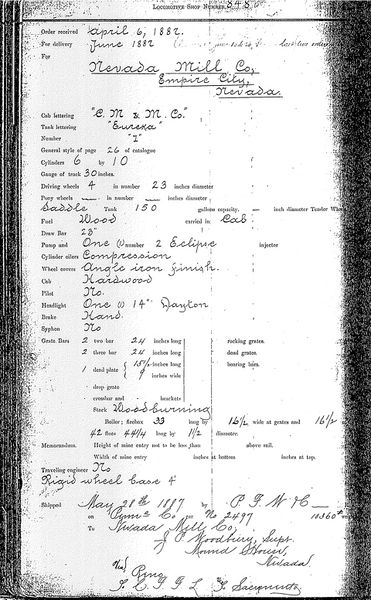 LOCOMOTIVE SHOP NUMBER 348
Order received April 6, 1882.
For delivery June 1882
For
Nevada Mill Co,
Empire City,
Nevada.
Cab lettering "C. M & M. Co."
Tank lettering "Eureka"
Number "1"
General style of page 26 of catalogue
Cylinders 6 by 10
Gauge of track 30 inches.
Driving wheels 4 in number 23 inches diameter
Pony wheels — in number — inches diameter
Saddle Tank 150 gallons capacity, — inch diameter Tender Whe
Fuel Wood carried in Cab.
Draw Bar 23"
Pump and One (1) number 2 Eclipse injector
Cylinder oilers Compression
Wheel covers Angle iron finish.
Cab Hardwood
Pilot No.
Headlight One (1) 14" Dayton
Brake Hand.
Syphon No
Grate Bars 2 two bar 24 inches long rocking grates.
2 three bar 24 inches long dead grates.
1 dead plate 15½ inches long bearing bars.
9 inches wide
drop grate
crossbar and brackets
Stack Woodburning
Boiler; firebox 33 long by 16½ wide at grates and 16½
42 flues 44¼ long by 1½ diameter.
Memorandum. Height of mine entry not to be less than above rail.
Width of mine entry inches at bottom inches at top.
Traveling engineer No
Rigid wheel base 4'
Shipped May 28th 1887 by P. F. W & C
on Penna Co No 2497 10360#
To Nevada Mill Co,
J. P. Woodbury, Supt.
Mound House,
Nevada